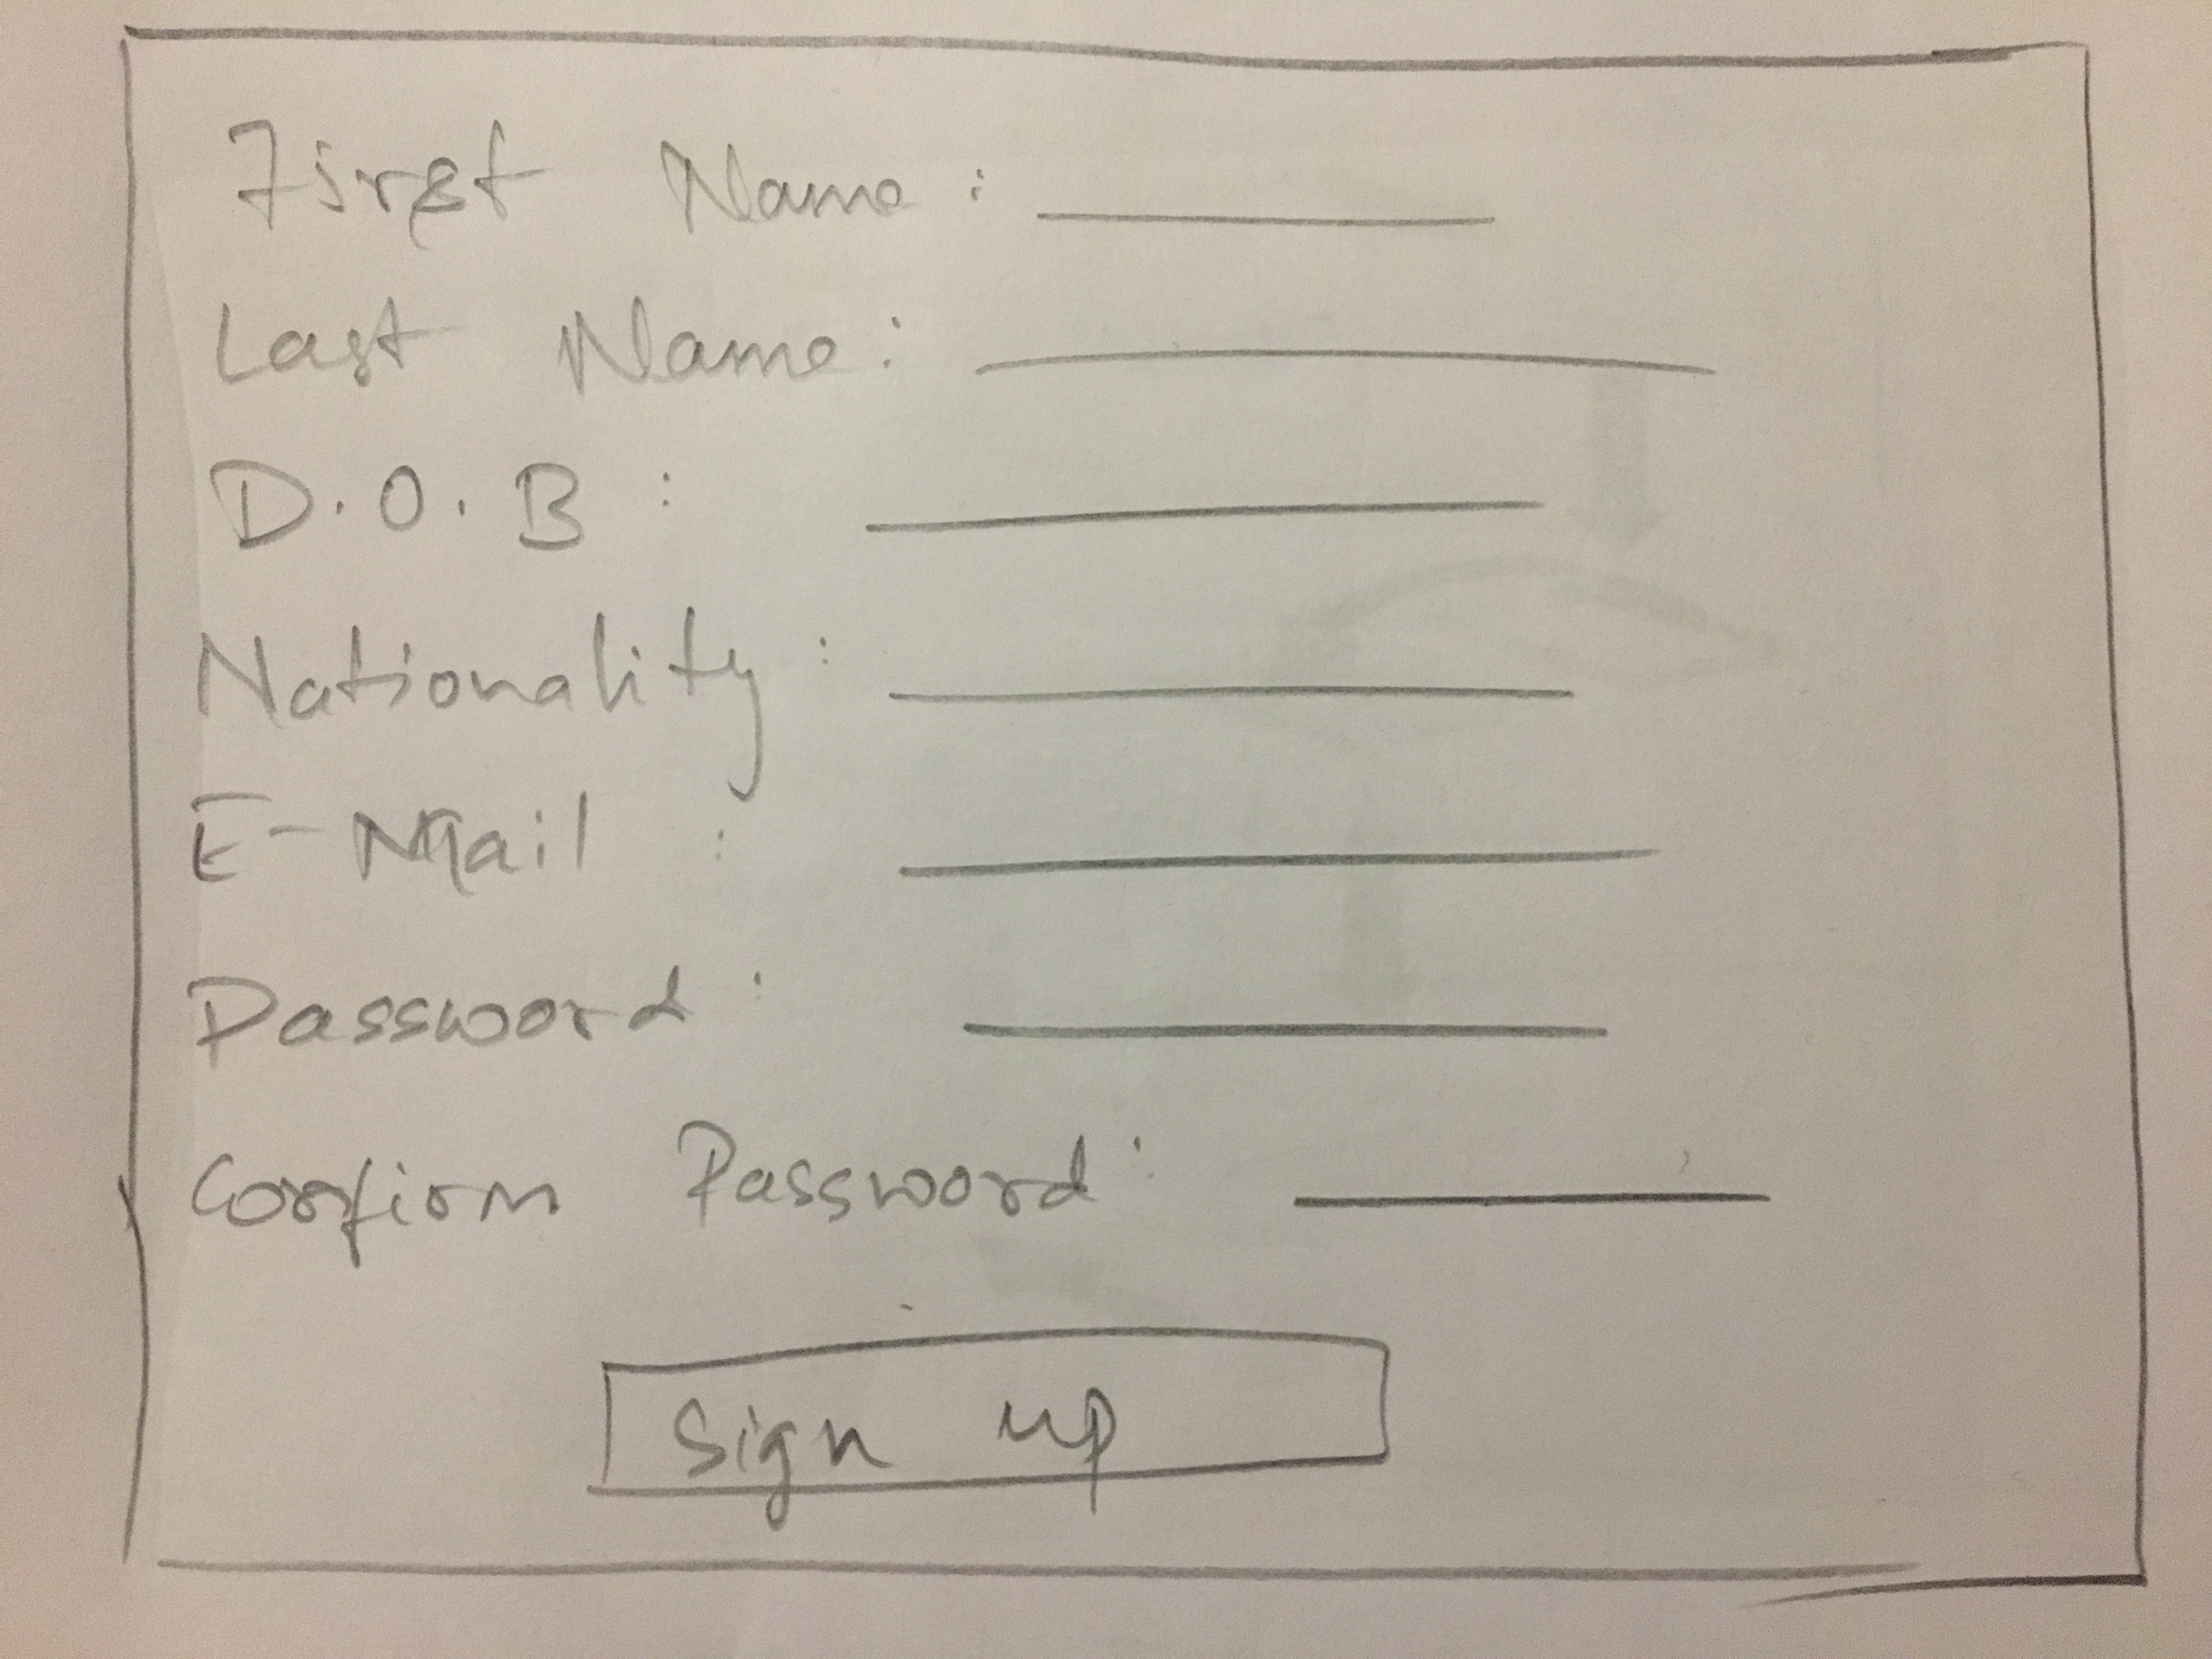 First Name :
Last Name :
D.O.B :
Nationality :
E-Mail :
Password :
Confirm Password :
Sign up